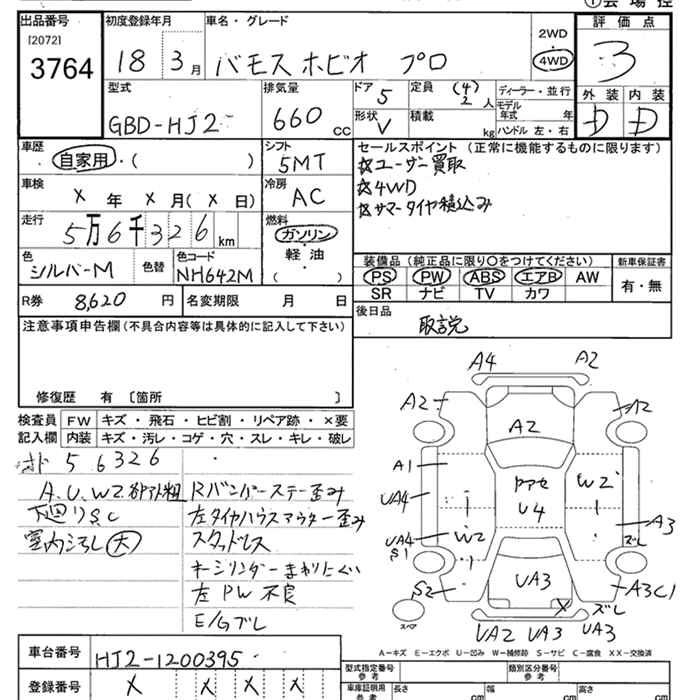 ①会場控
出品番号
[2072]
3764
初度登録年月
18 3月
車名・グレード
バモス ホビオ プロ
2WD
4WD
評価点
3
型式
GBD-HJ2
排気量
660 cc
ドア
5
形状
V
定員
(4)
2 人
積載
kg
ディーラー・並行
モデル年式 年
ハンドル 左・右
外装 内装
D D
車歴
自家用・( )
シフト
5MT
セールスポイント(正常に機能するものに限ります)
☆ユーザー買取
☆4WD
☆サマータイヤ積込み
車検
× 年 × 月(× 日)
冷房
AC
走行
5万6千326 km
燃料
ガソリン・
軽油
( )
色
シルバーM
色替
色コード
NH642M
装備品(純正品に限り〇をつけてください)
PS PW ABS エアB AW
SR ナビ TV カワ
新車保証書
有・無
R券 8,620 円
名変期限 月 日
後日品
取説
注意事項申告欄(不具合内容等は具体的に記入して下さい)
修復歴 有 [箇所 ]
検査員記入欄
FW キズ・飛石・ヒビ割・リペア跡・×要
内装 キズ・汚レ・コゲ・穴・スレ・キレ・破レ
オド 56326
A.U.W2.
下廻りS.C
室内ヨゴレ(大)
Rバンパーステー歪み
左タイヤハウスアウター歪み
スタッドレス
キーシリンダーまわりにくい
左PW不良
E/Gブレ
A4 A2
A2 A2
A2
A1
UA4
UA4
S1
W2
ドアセ
U4
W2
A3
ズレ
S2
UA3
X
A3C1
ズレ
UA2 UA3 UA3
スペア
A－キズ E－エクボ U－凹み W－補修跡 S－サビ C－腐食 XX－交換済
車台番号
HJ2-1200395
登録番号
× × × ×
型式指定番号
参考
類別区分番号
参考
車庫証明用
参考
長さ cm
幅 cm
高さ cm